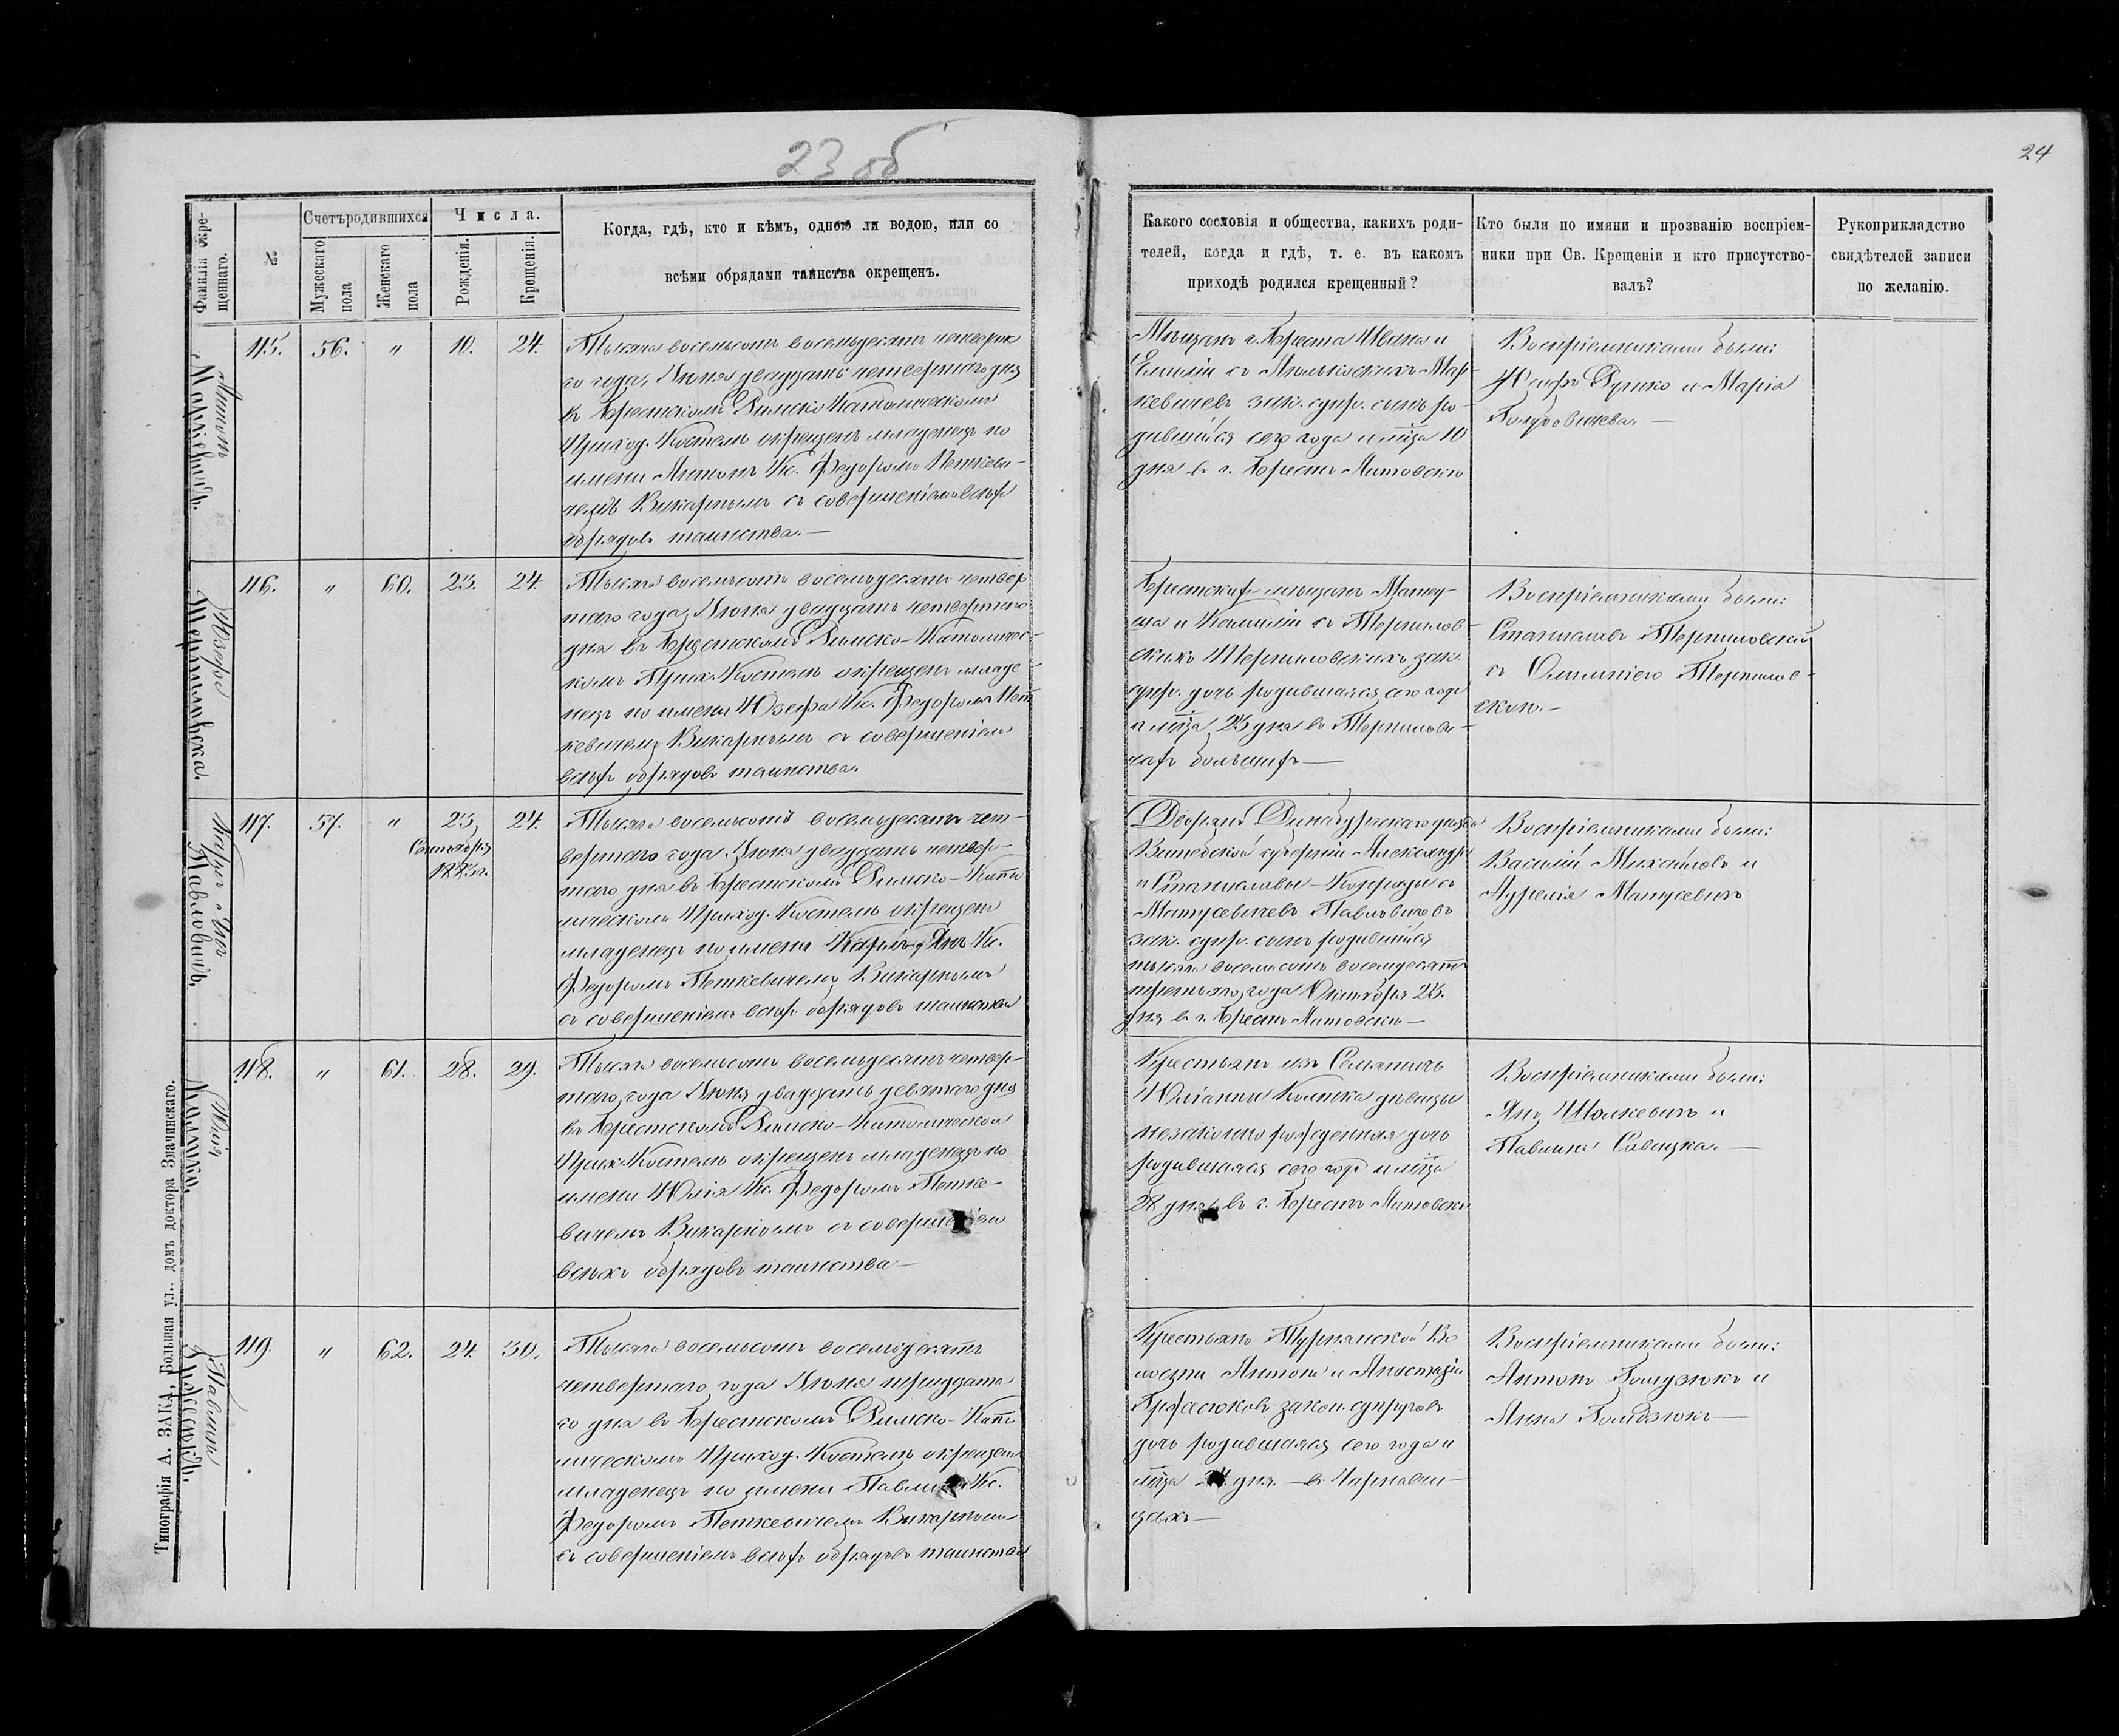 23 об
24
Фамилія окрещеннаго.
№
Счетъ родившихся
Мужескаго пола
Женскаго пола
Числа.
Рожденія.
Крещенія.
Когда, гдѣ, кто и кѣмъ, одною ли водою, или со
всѣми обрядами таинства окрещенъ.
Какого сословія и общества, какихъ роди-
телей, когда и гдѣ, т. е. въ какомъ
приходѣ родился крещенный?
Кто были по имяни и прозванію воспріем-
ники при Св. Крещеніи и кто присутство-
валъ?
Рукоприкладство
свидѣтелей записи
по желанію.
Антонъ
Маркевичъ.
115. 56. " 10. 24.
Тысяча восемьсотъ восемьдесятъ четверта
го года, Іюня двадцать четвертаго дня
въ Брестскомъ Римско Католическомъ
Приход. Костелѣ окрещенъ младенецъ по
имени Антонъ Кс. Федоромъ Петкеви-
чемъ Викарнымъ съ совершеніемъ всѣхъ
обрядовъ таинства.—
Мѣщанъ г. Бреста Ивана и
Емиліи съ Мар-
кевичевъ зак. супр. сынъ ро-
дившійся сего года и мѣца 10
дня въ г. Брестъ Литовскѣ
Воспріемниками были:
Юсифъ и Марія
Юзефа
116. " 60. 23. 24.
Тысяча восемьсотъ восемьдесятъ четвер
таго года, Іюня двадцать четвертаго
дня въ Брестскомъ Римско-Католичес-
комъ Прих. Костелѣ окрещенъ младе-
нецъ по имени Юзефа Кс. Федоромъ Пет
кевичемъ Викарнымъ съ совершеніемъ
всѣхъ обрядовъ таинства.
Брестскихъ мѣщанъ
зак.
супр. дочь родившаяся сего года
и мѣца 23 дня въ
большихъ—
Воспріемниками были:
Станиславъ
съ
Карлъ Янъ
Павловичъ.
117. 57. " 23 24.
Сентября
1883г.
Тысяча восемьсотъ восемьдесятъ чет-
вертаго года Іюня двадцать четвер-
таго дня въ Брестскомъ Римско-Като
лическомъ Приход. Костелѣ окрещенъ
младенецъ по имени Карлъ, Янъ Кс.
Федоромъ Петкевичемъ Викарнымъ
съ совершеніемъ всѣхъ обрядовъ таинства
Дворянъ Динабургскаго уѣзда
Витебской губерніи Александра
и Станиславы-Конрады съ
Матусевичевъ Павловичевъ
зак. супр. сынъ родившійся
тысяча восемьсотъ восемдесятъ
третьяго года Октября 23.
дня въ г. Брестъ Литовскѣ—
Воспріемниками были:
Василій Михайловъ и
Аурелія Матусевичъ
Юлія
118. " 61. 28. 29.
Тысяча восемьсотъ восемьдесятъ четвер-
таго года Іюня двадцать девятаго дня
въ Брестскомъ Римско-Католическомъ
Прих. Костелѣ окрещенъ младенецъ по
имени Юлія Кс. Федоромъ Петке-
вичемъ Викарнымъ съ совершеніем
всѣхъ обрядовъ таинства—
Крестьянъ изъ Семятичъ
Юліанны дѣвицы
незаконно рожденная дочь
родившаяся сего года и мѣца
28 дня въ г. Брестъ Литовскѣ
Воспріемниками были:
Янъ и
Павлина Савицка.—
Павлина
119. " 62. 24. 30.
Тысяча восемьсотъ восемьдесятъ
четвертаго года Іюня тридцата
го дня въ Брестскомъ Римско-Като
лическомъ Приход. Костелѣ окрещенъ
младенецъ по имени Павлина Кс.
Федоромъ Петкевичемъ Викарнымъ
съ совершеніемъ всѣхъ обрядовъ таинства
Крестьянъ Турнянской Во
лости Антона и Анастазіи
закон. супруговъ
дочь родившаяся сего года и
мѣца 24 дня.— въ Чернавчи-
цахъ—
Воспріемниками были:
Антонъ и
Анна
Типографія А. ЗАКА, Большая ул., домъ доктора Змачинскаго.